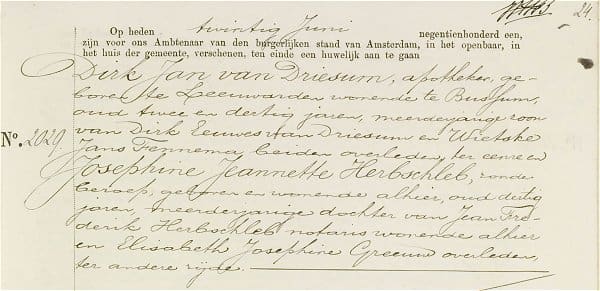 24.
Op heden twintig Juni negentienhonderd een,
zijn voor ons Ambtenaar van den burgerlijken stand van Amsterdam, in het openbaar, in
het huis der gemeente, verschenen, ten einde een huwelijk aan te gaan
Dirk Jan van Driesum, apotheker, ge-
boren te Leeuwarden, wonende te Bussum,
oud twee en dertig jaren, meerderjarige zoon
van Dirk Eeuwes van Driesum en Wietske
No. 2029. Jans Fennema, beiden overleden, ter eenre en
Josephine Jeannette Herbschleb, zonder
beroep, geboren en wonende alhier, oud dertig
jaren, meerderjarige dochter van Jean Fre-
derik Herbschleb, notaris wonende alhier
en Elisabeth Josephine Greeuw, overleden,
ter andere zijde.